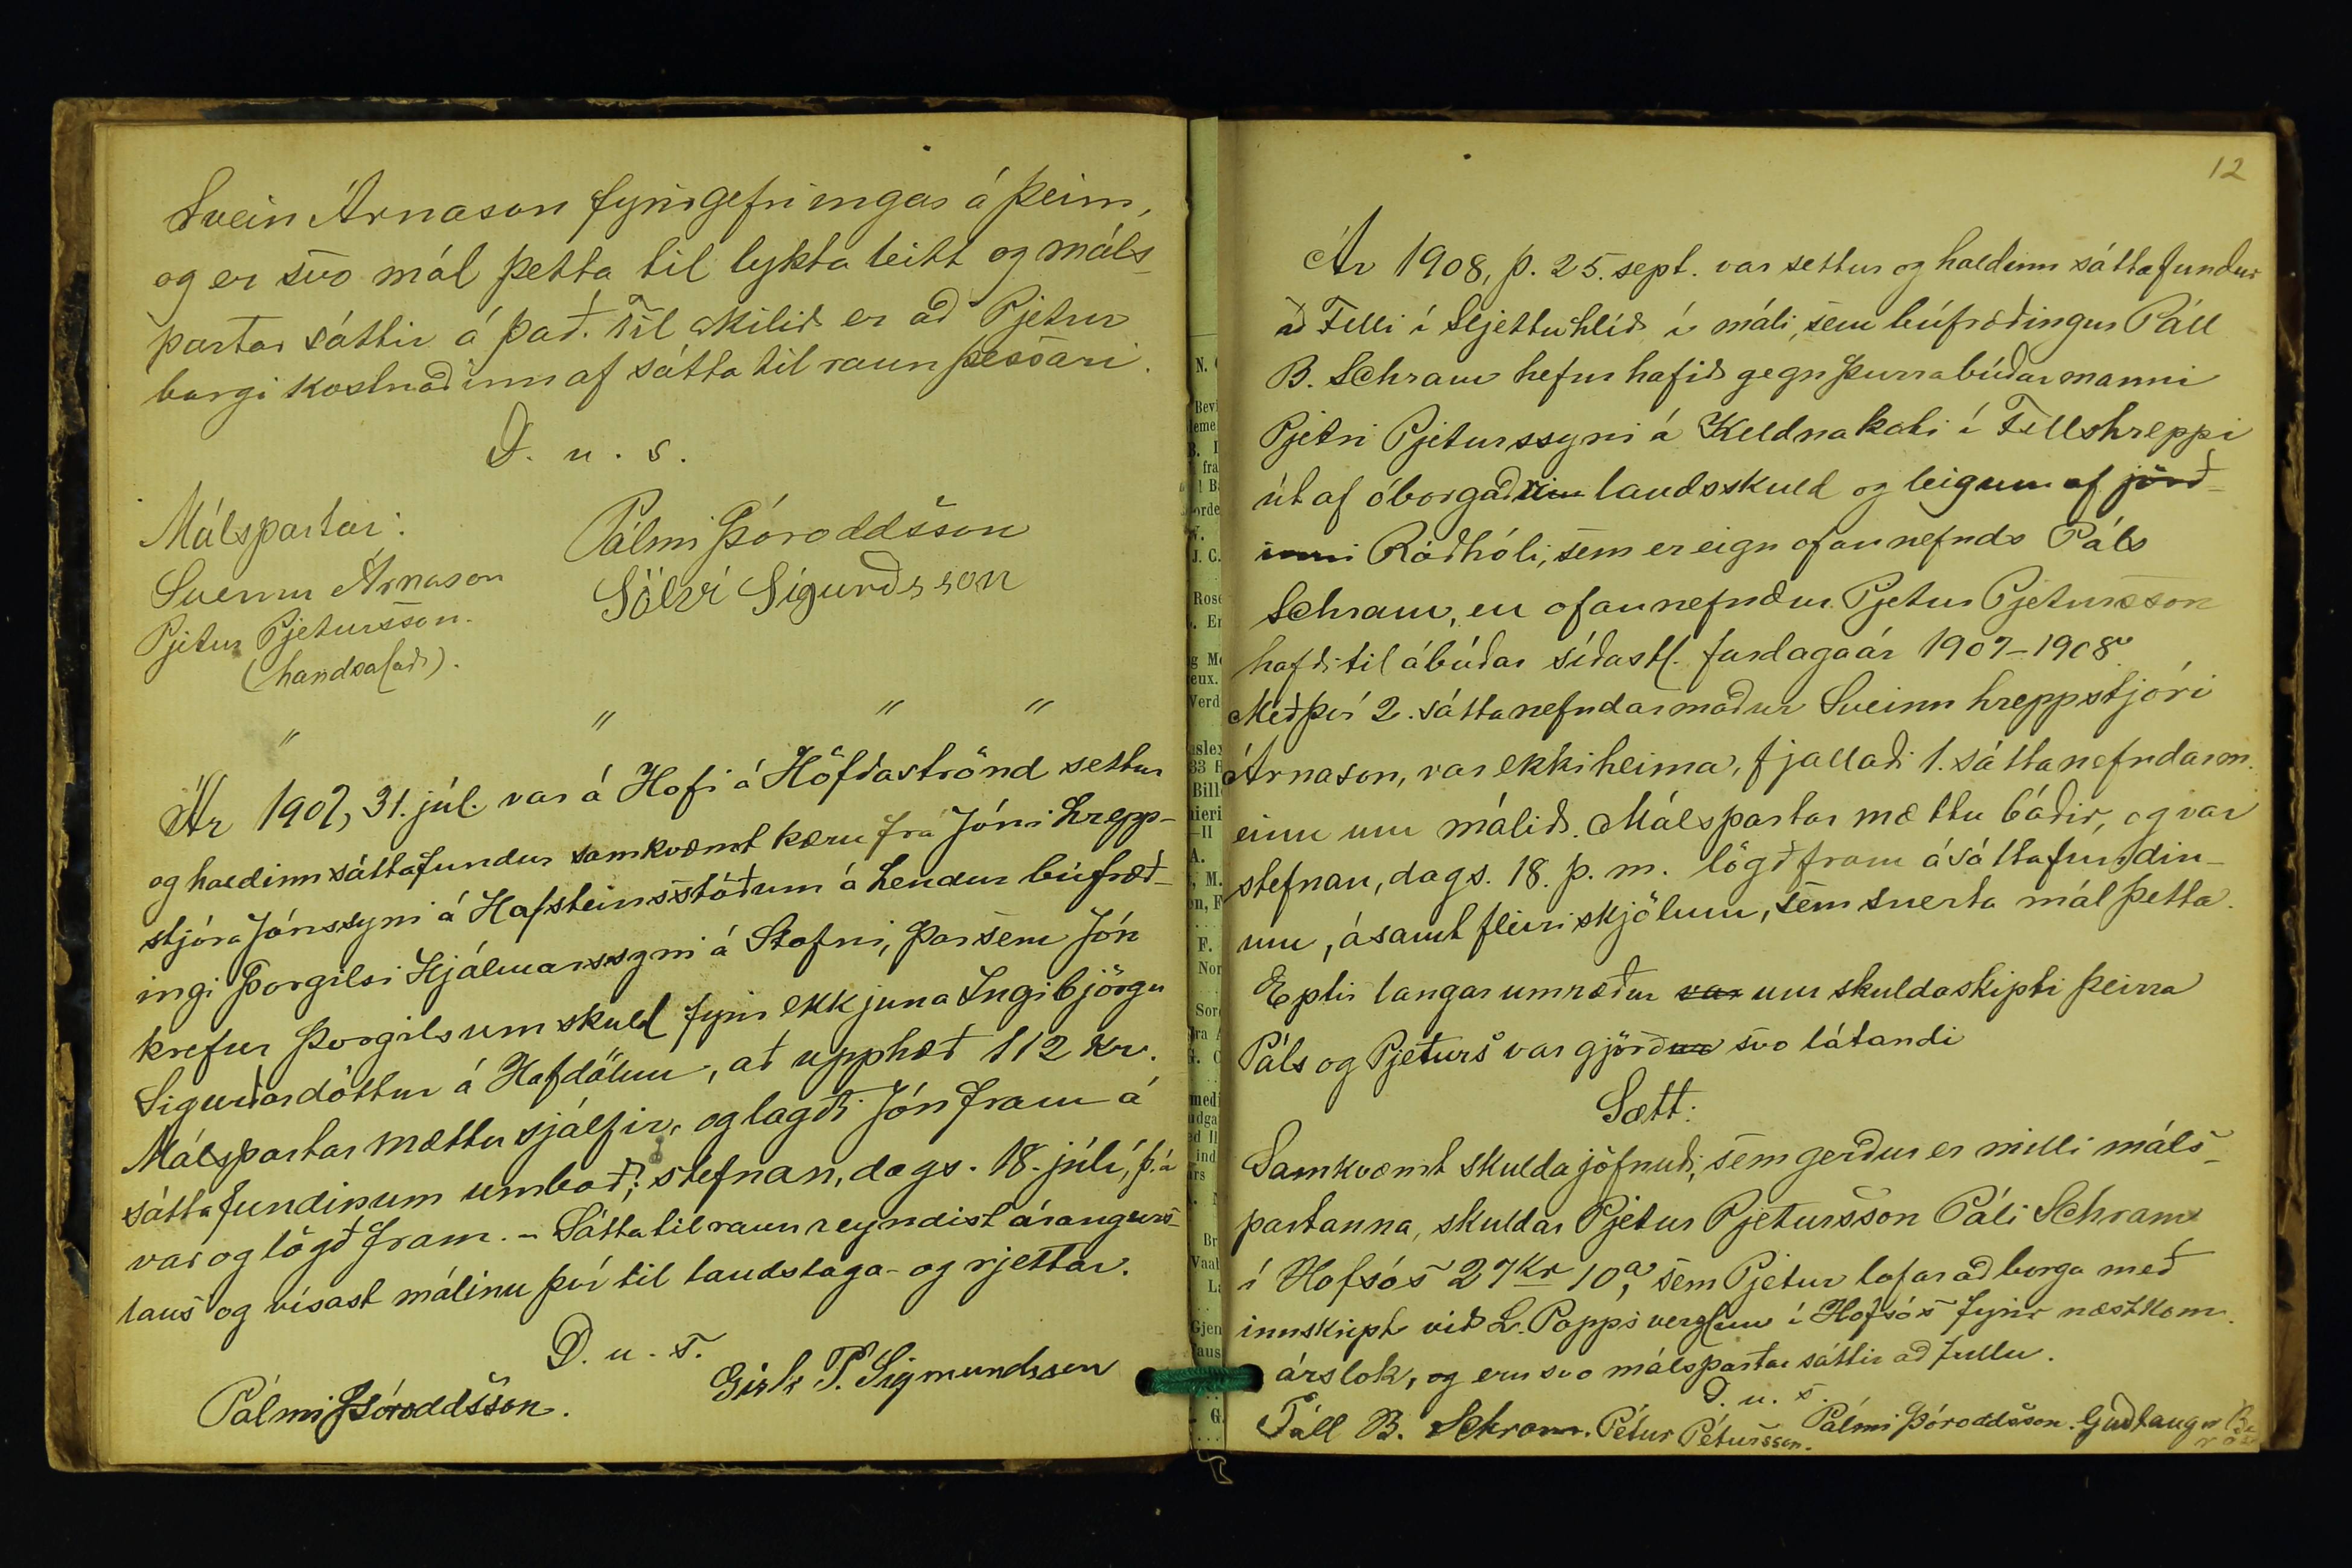 Svein Árnason fyrirgefningar á þeim,
og er svo mál þetta til lykta leitt og máls-
partar sáttir á það. Til skilið er að Pjetur
borgi kostnaðinn af sáttatilraun þessari.
D. u. s.
Málspartar:
Sveinn Árnason
Pjetur Pjetursson.
(handsalað).
Pálmi Þóroddsson
Sölvi Sigurðsson
" " " "
Ár 1907, 31. júl. var á Hofi á Höfðaströnd settur
og haldinn sáttafundur samkvæmt kæru frá Jóni hrepp-
stjóra Jónssyni á Hafsteinsstöðum á hendur búfræð-
ingi Þorgilsi Hjálmarssyni á Stafni, þar sem Jón
krefur Þorgils um skuld fyrir ekkjuna Ingibjörgu
Sigurðardóttur á Hofdölum, að upphæð 112 kr.
Málspartar mættu sjálfir, og lagði Jón fram á
sáttafundinum umboð; stefnan, dags. 18. júlí, þ.á
var og lögð fram. - Sáttatilraun reyndist árangurs-
laus og vísast málinu því til landslaga- og rjettar.
D. u. s.
Pálmi Þóroddsson.
Gísli P. Sigmundsson
12
Ár 1908, þ. 25. sept. var settur og haldinn sáttafundur
að Felli í Sljettuhlíð í máli, sem búfræðingur Páll
B. Schram hefur hafið gegn þurrabúðarmanni
Pjetri Pjeturssyni á Keldnakoti í Fellshreppi
út af óborgaðri landsskuld og leigum af jörð-
inni Róðhóli, sem er eign ofannefnds Páls
Schram, en ofannefndur Pjetur Pjetursson
hafði til ábúðar síðastl. fardagaár 1907-1908.
Með því 2. sáttanefndarmaður Sveinn hreppstjóri
Árnason, var ekki heima, fjallaði 1. sáttanefndarm.
einn um málið. Málspartar mættu báðir, og var
stefnan, dags. 18. þ. m. lögð fram á sáttafundin-
um, ásamt fleiri skjölum, sem snerta mál þetta.
Eptir langar umræður var um skuldaskipti þeirra
Páls og Pjeturs var gjörður svo látandi
Sætt:
Samkvæmt skuldajöfnuði, sem gerður er milli máls-
partanna, skuldar Pjetur Pjetursson Páli Schram
í Hofsós 27 kr 10 a, sem Pjetur lofar að borga með
innskript við L. Popps verzlun í Hofsós fyrir næstkom.
árslok, og eru svo málspartar sáttir að fullu.
D. u. s.
Páll B. Schram. Pétur Pétursson. Pálmi Þóroddsson. Guðlaugur